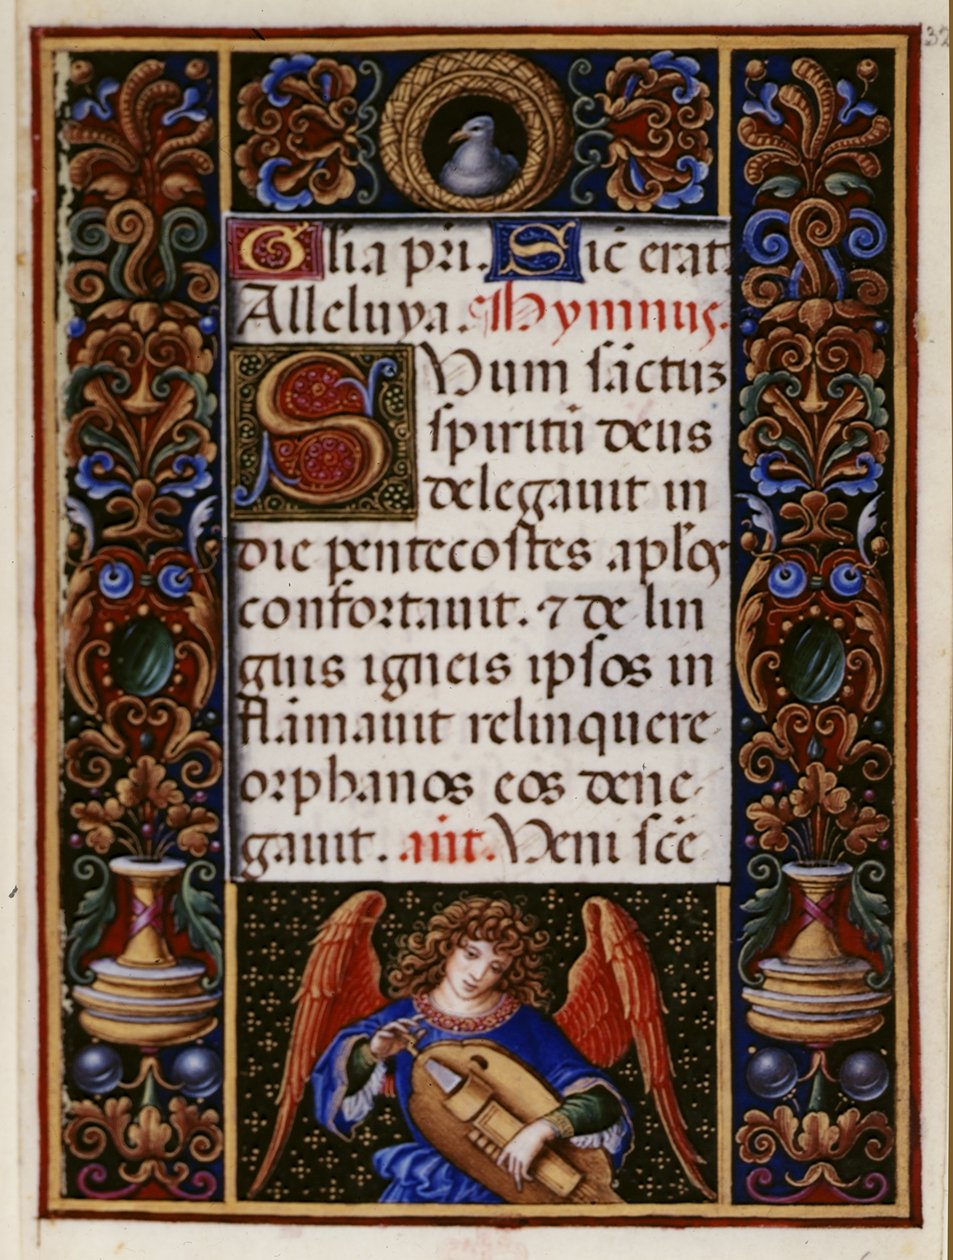 32
Gl'ia pr̄i. Sic̄ erat
Alleluya. Hymnus.
SVum sāctuȝ
spiritū deus
delegauit in
die pentecostes apl'oꝝ
confortauit. ⁊ de lin
guis igneis ipsos in
flāmauit relinquere
orphanos eos dene
gauit. añt. Veni scē